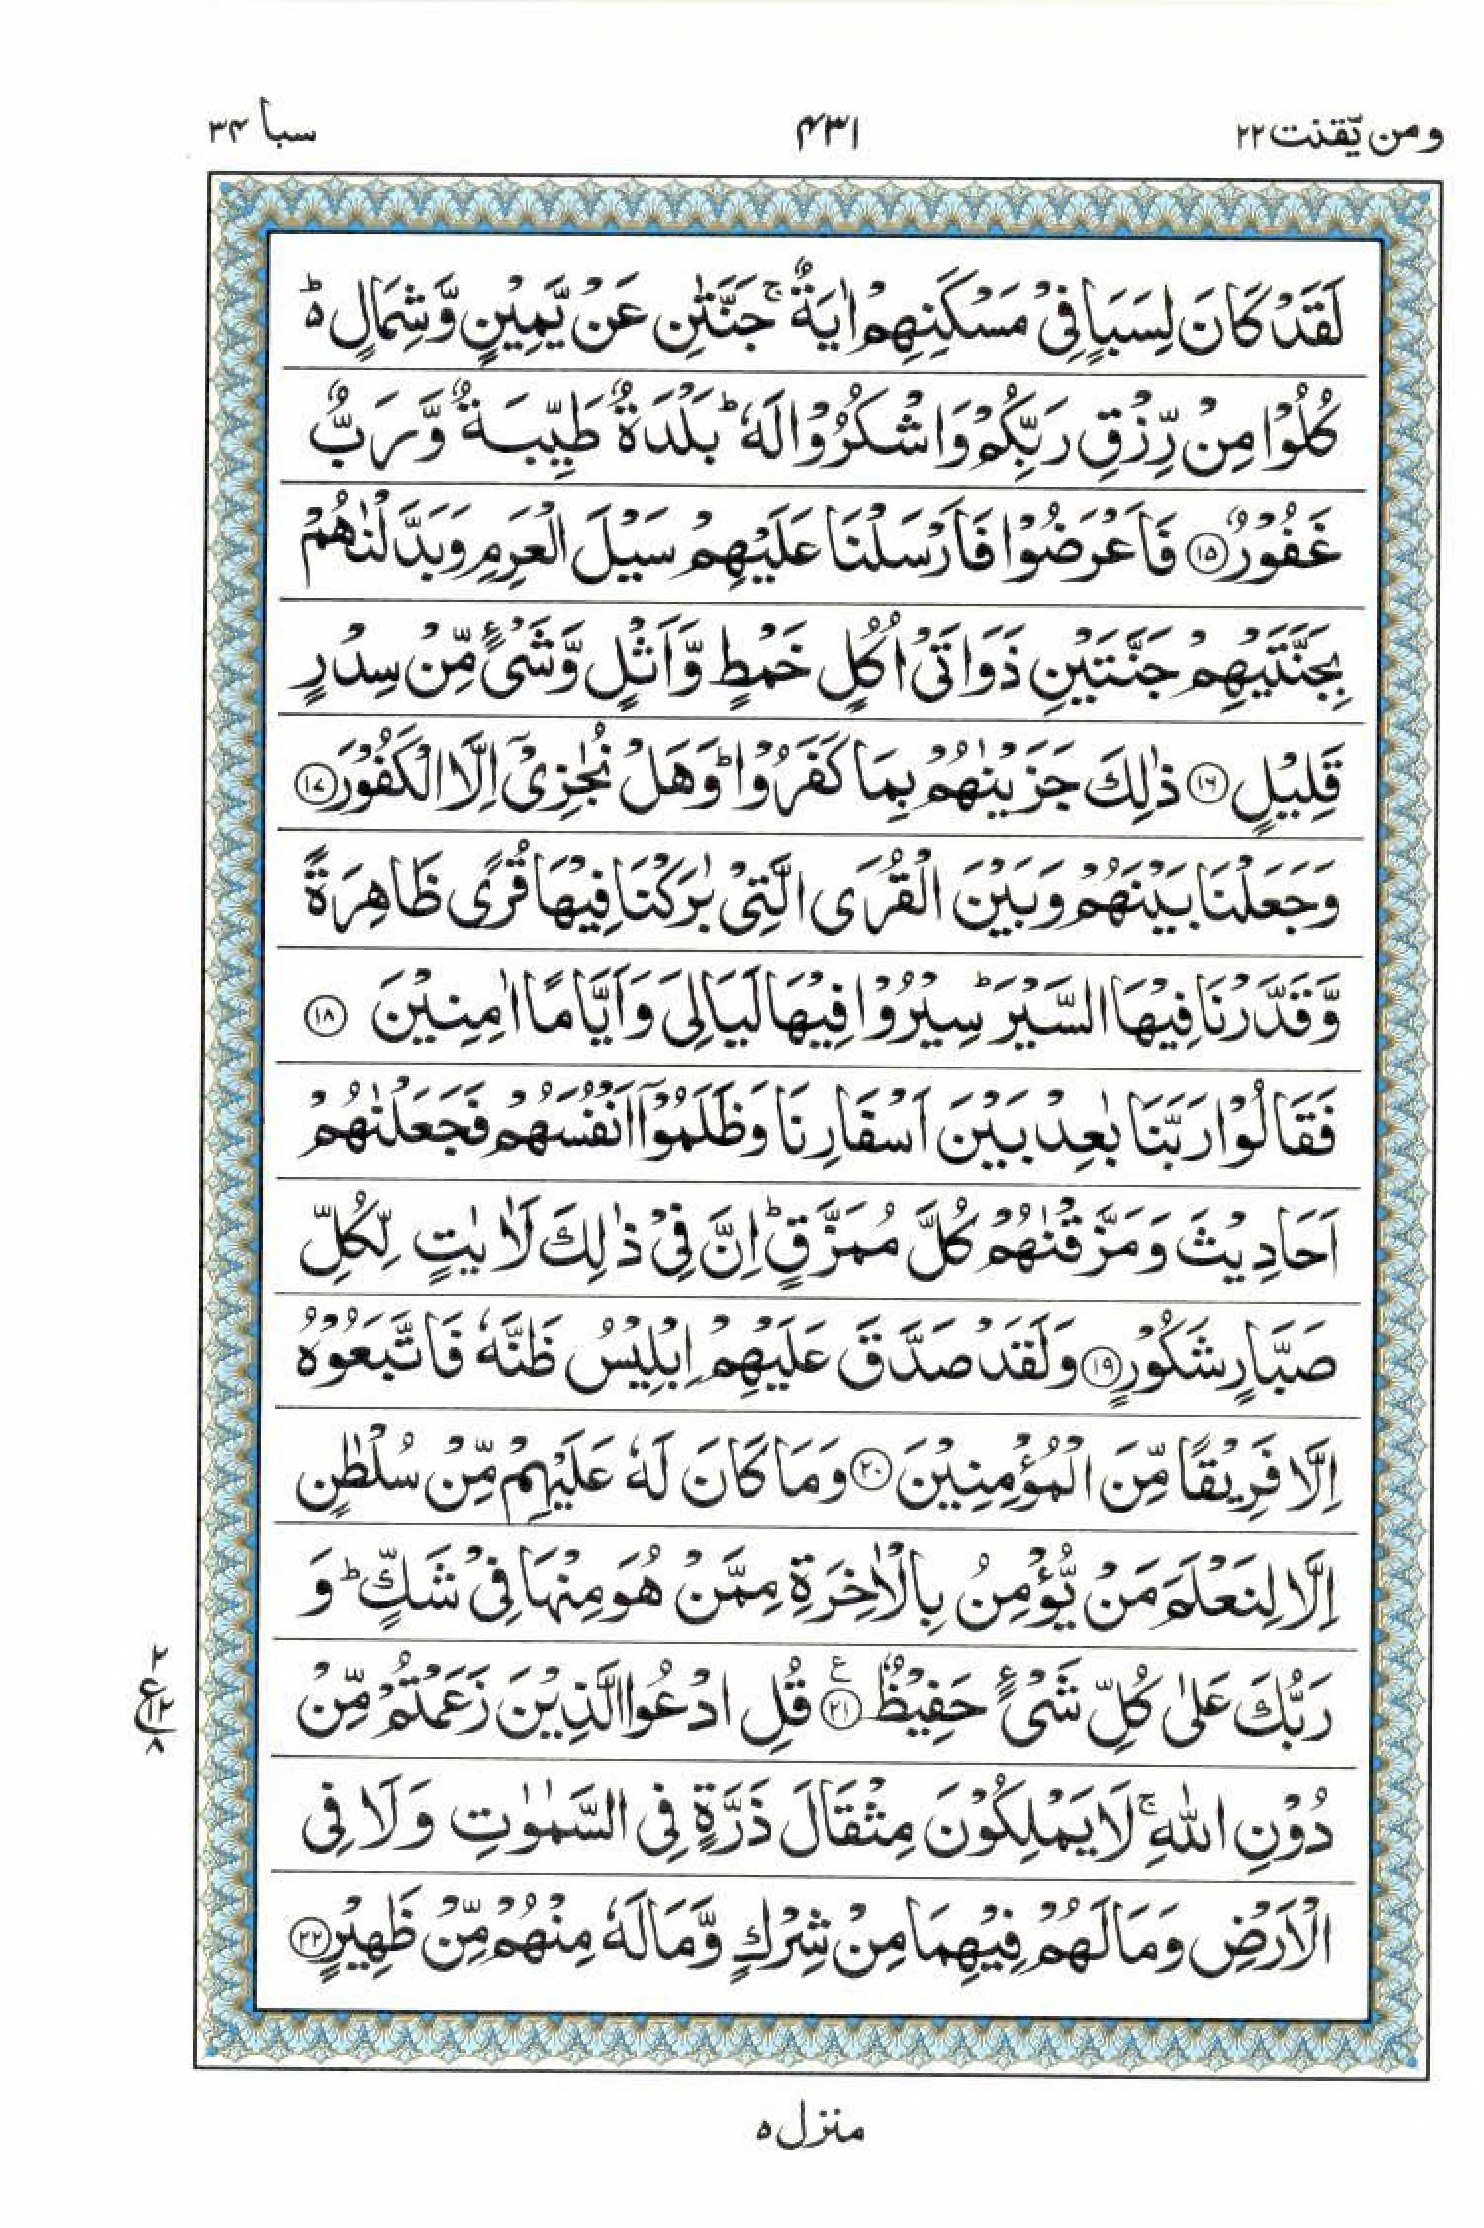 ومن يّقنت ٢٢
٤٣١
سبا ٣٤
لَقَدْ كَانَ لِسَبَاٍ فِیْ مَسْكَنِهِمْ اٰیَةٌ ۚ جَنَّتٰنِ عَنْ یَّمِیْنٍ وَّشِمَالٍ ؕ۬
كُلُوْا مِنْ رِّزْقِ رَبِّكُمْ وَاشْكُرُوْا لَهٗ ؕ بَلْدَةٌ طَیِّبَةٌ وَّرَبٌّ
غَفُوْرٌ ﴿۱۵﴾ فَاَعْرَضُوْا فَاَرْسَلْنَا عَلَیْهِمْ سَیْلَ الْعَرِمِ وَبَدَّلْنٰهُمْ
بِجَنَّتَیْهِمْ جَنَّتَیْنِ ذَوَاتَیْ اُكُلٍ خَمْطٍ وَّاَثْلٍ وَّشَیْءٍ مِّنْ سِدْرٍ
قَلِیْلٍ ﴿۱۶﴾ ذٰلِكَ جَزَیْنٰهُمْ بِمَا كَفَرُوْا ؕ وَهَلْ نُجٰزِیْۤ اِلَّا الْكَفُوْرَ ﴿۱۷﴾
وَجَعَلْنَا بَیْنَهُمْ وَبَیْنَ الْقُرَی الَّتِیْ بٰرَكْنَا فِیْهَا قُرًی ظَاهِرَةً
وَّقَدَّرْنَا فِیْهَا السَّیْرَ ؕ سِیْرُوْا فِیْهَا لَیَالِیَ وَاَیَّامًا اٰمِنِیْنَ ﴿۱۸﴾
فَقَالُوْا رَبَّنَا بٰعِدْ بَیْنَ اَسْفَارِنَا وَظَلَمُوْۤا اَنْفُسَهُمْ فَجَعَلْنٰهُمْ
اَحَادِیْثَ وَمَزَّقْنٰهُمْ كُلَّ مُمَزَّقٍ ؕ اِنَّ فِیْ ذٰلِكَ لَاٰیٰتٍ لِّكُلِّ
صَبَّارٍ شَكُوْرٍ ﴿۱۹﴾ وَلَقَدْ صَدَّقَ عَلَیْهِمْ اِبْلِیْسُ ظَنَّهٗ فَاتَّبَعُوْهُ
اِلَّا فَرِیْقًا مِّنَ الْمُؤْمِنِیْنَ ﴿۲۰﴾ وَمَا كَانَ لَهٗ عَلَیْهِمْ مِّنْ سُلْطٰنٍ
اِلَّا لِنَعْلَمَ مَنْ یُّؤْمِنُ بِالْاٰخِرَةِ مِمَّنْ هُوَ مِنْهَا فِیْ شَكٍّ ؕ وَ
رَبُّكَ عَلٰی كُلِّ شَیْءٍ حَفِیْظٌ ﴿۲۱﴾ قُلِ ادْعُوا الَّذِیْنَ زَعَمْتُمْ مِّنْ
دُوْنِ اللّٰهِ ۚ لَا یَمْلِكُوْنَ مِثْقَالَ ذَرَّةٍ فِی السَّمٰوٰتِ وَلَا فِی
الْاَرْضِ وَمَا لَهُمْ فِیْهِمَا مِنْ شِرْكٍ وَّمَا لَهٗ مِنْهُمْ مِّنْ ظَهِیْرٍ ﴿۲۲﴾
٢
ع١٢
٨
منزل ٥